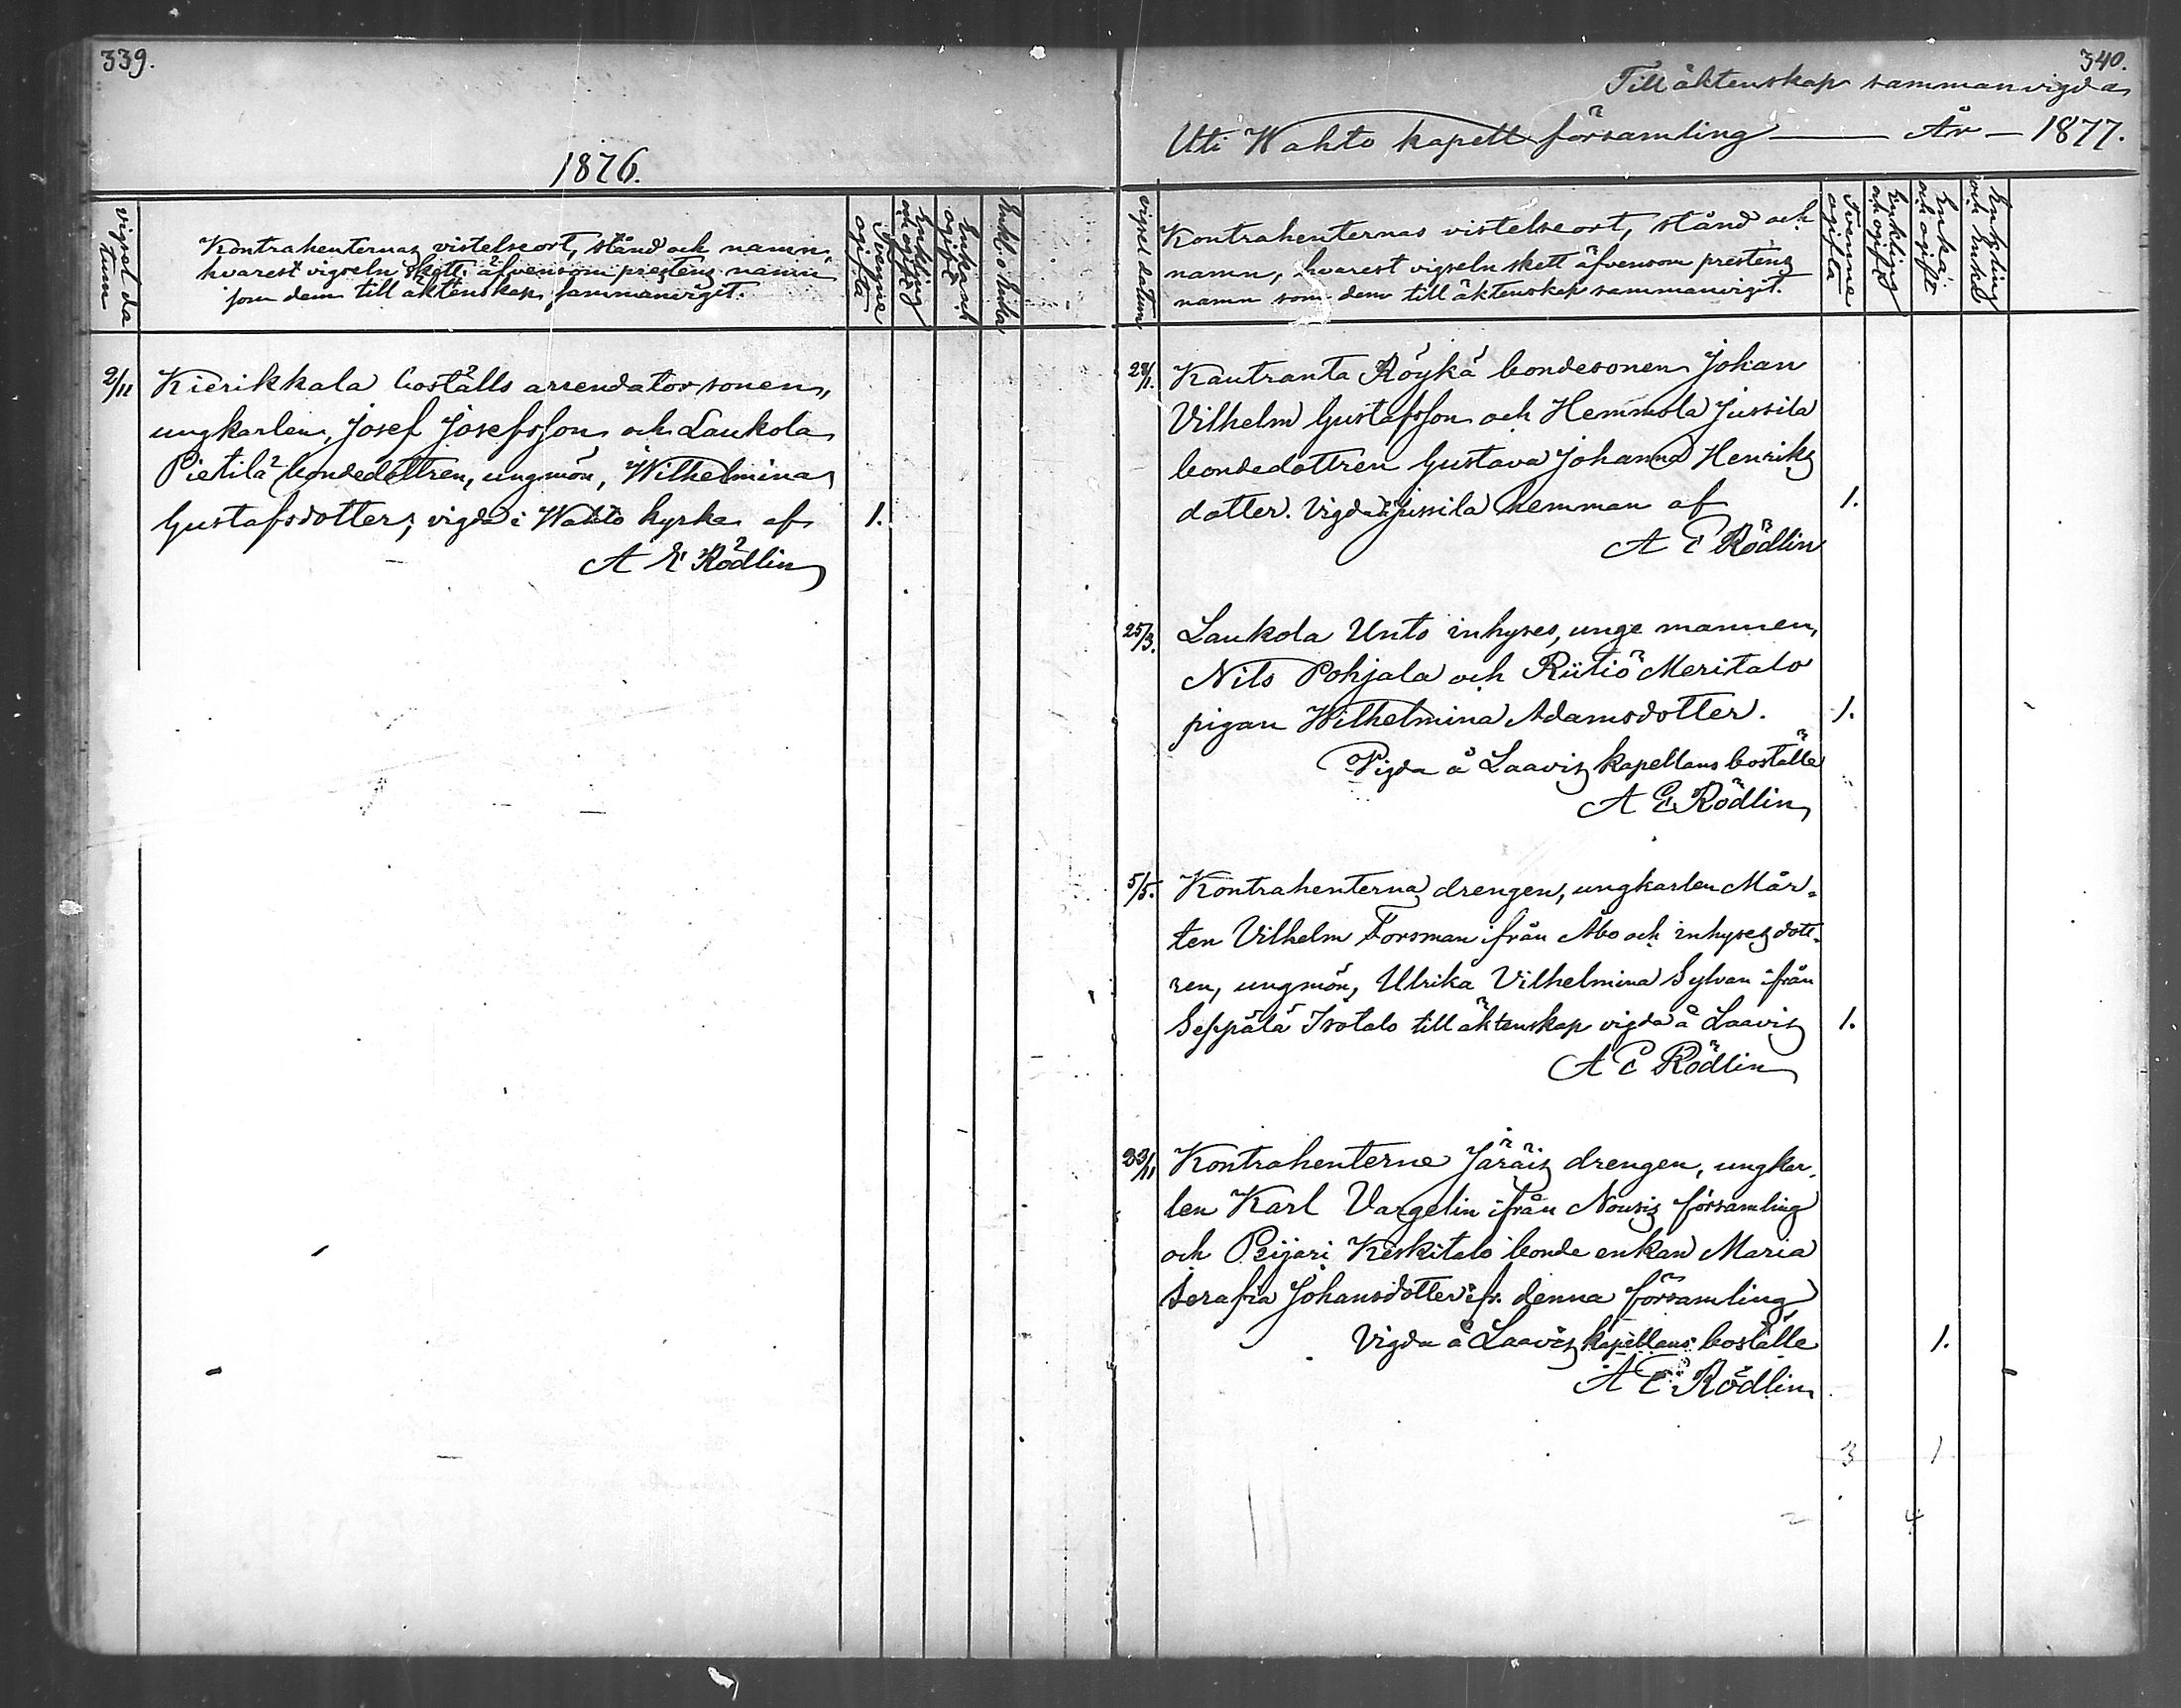 339.
1876.
vigsel da
tum
Kontrahenternas vistelseort, stånd och namn,
hvarest vigseln skett äfvensom prestens namn
som dem till äktenskap sammanvigit.
Tvenne
ogifta
Enkling
och ogift
Enka och
ogift
Enkl. o Enka
2/11 Kierikkala boställs arrendator sonen,
ungkarlen, Josef Josefsson och Laukola
Pietilä bondedottren, ungmön, Wilhelmina
Gustafsdotter; vigda i Wahto kyrka af 1.
A E Rödlin
340.
Till äktenskap sammanvigda
Uti Wahto kapell församling — År — 1877.
vigsel datum
Kontrahenternas vistelseort, stånd och
namn, hvarest vigseln skett äfvensom prestens
namn som dem till äktenskap sammanvigit.
Tvenne
ogifta
Enkling
och ogift
Enka
och ogift
Enkling
och Enka
28/1. Kautranta Röykä bondesonen Johan
Vilhelm Gustafsson och Hemmola Jussila
bondedottren Gustava Johanna Henriks
dotter. Vigda å Jussila hemman af 1.
A E Rödlin
25/3. Laukola Unto inhyses, unge mannen,
Nils Pohjala och Riitiö Meritalo
pigan Wilhelmina Adamsdotter. 1.
Vigda å Laavis kapellans boställe
A E Rödlin
5/5. Kontrahenterna drengen, ungkarlen Mår-
ten Vilhelm Forsman ifrån Åbo och inhyses dott-
ren, ungmön, Ulrika Vilhelmina Sylvan ifrån
Seppälä Isotalo till äktenskap vigda å Laavis 1.
A E Rödlin
23/11 Kontrahenterne Järäis drengen, ungkar-
len Karl Vargelin ifrån Nousis församling
och Peijari Keskitalo bonde enkan Maria
Serafia Johansdotter ifr. denna församling
Vigda å Laavis kapellans boställe 1.
A E Rödlin
3 1
4